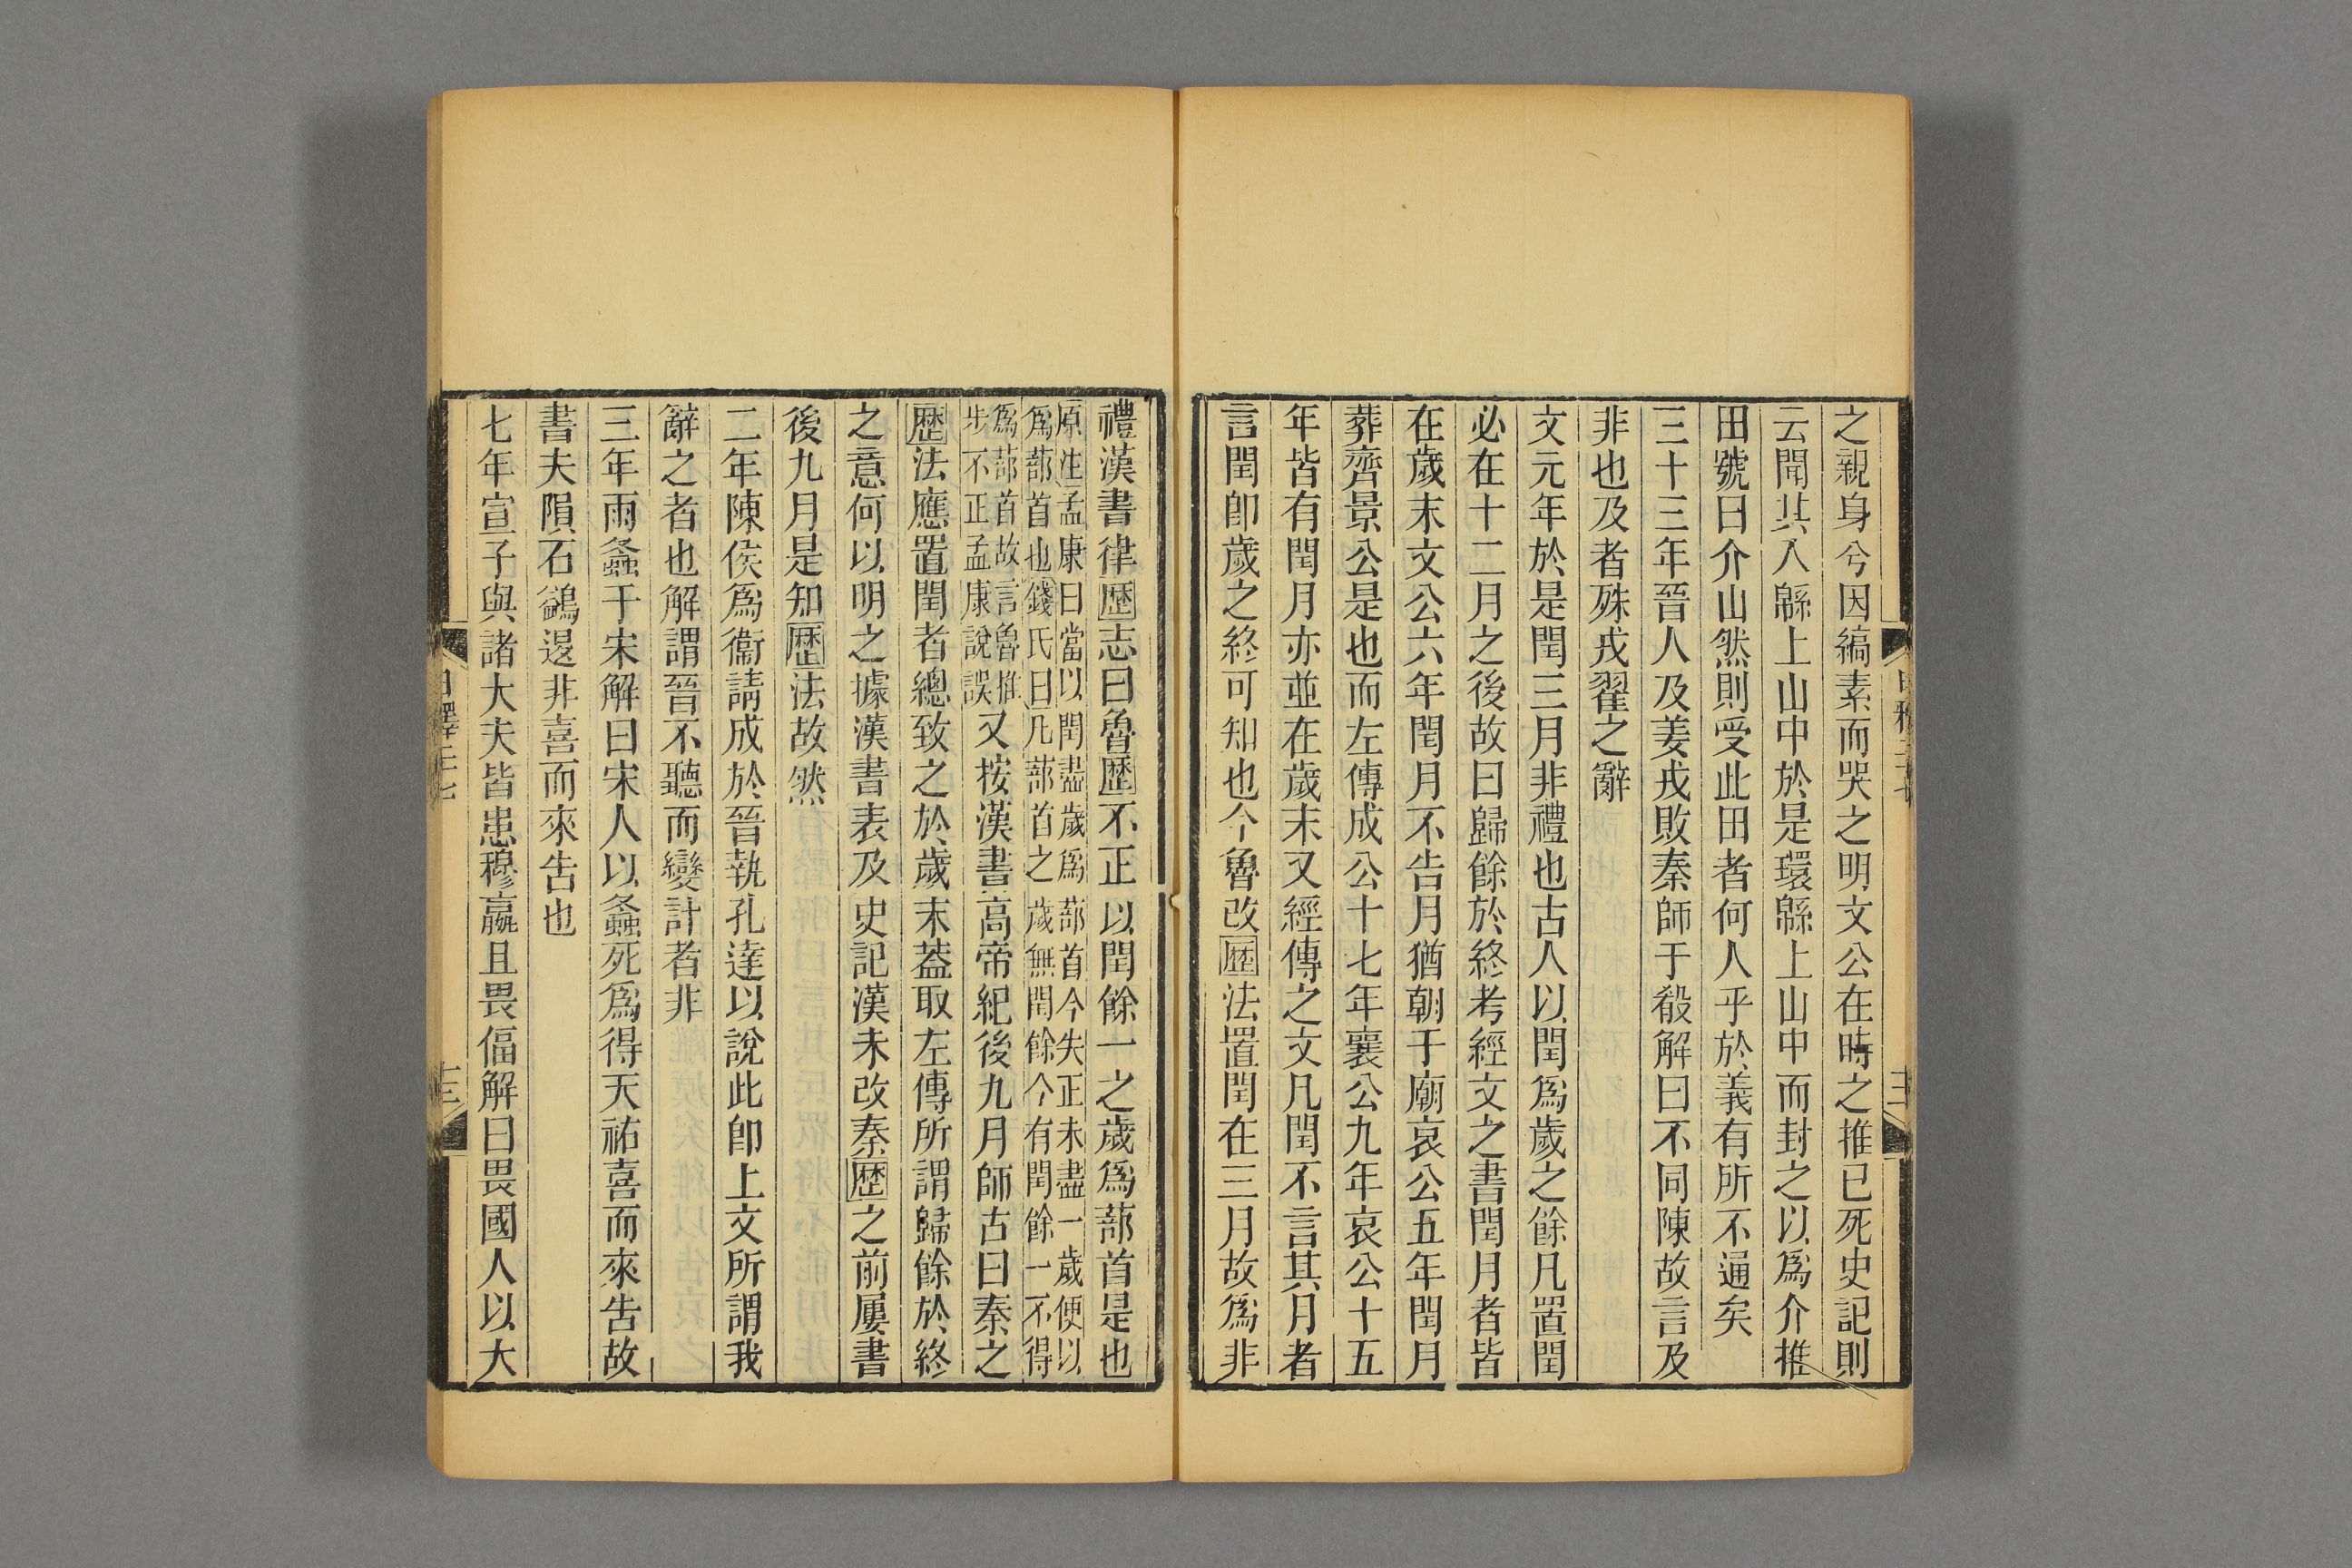 之親身兮因縞素而哭之明文公在時之推已死史記則
云聞其入緜上山中於是環緜上山中而封之以爲介推
田號曰介山然則受此田者何人乎於義有所不通矣
三十三年晉人及姜戎敗秦師于殽解曰不同陳故言及
非也及者殊戎翟之辭
文元年於是閏三月非禮也古人以閏爲歲之餘凡置閏
必在十二月之後故曰歸餘於終考經文之書閏月者皆
在歲末文公六年閏月不告月猶朝于廟哀公五年閏月
葬齊景公是也而左傳成公十七年襄公九年哀公十五
年皆有閏月亦並在歲末又經傳之文凡閏不言其月者
言閏卽歲之終可知也今魯改歷法置閏在三月故爲非
禮漢書律歷志曰魯歷不正以閏餘一之歲爲蔀首是也
原注孟康曰當以閏盡歲爲蔀首今失正未盡一歲便以
爲蔀首也錢氏曰凡蔀首之歲無閏餘今有閏餘一不得
爲蔀首故言魯推
步不正孟康說誤
又按漢書高帝紀後九月師古曰秦之
歷法應置閏者總致之於歲末葢取左傳所謂歸餘於終
之意何以明之據漢書表及史記漢未改秦歷之前屢書
後九月是知歷法故然
二年陳侯爲衞請成於晉執孔達以說此卽上文所謂我
辭之者也解謂晉不聽而變計者非
三年雨螽于宋解曰宋人以螽死爲得天祐喜而來告故
書夫隕石鷁退非喜而來告也
七年宣子與諸大夫皆患穆嬴且畏偪解曰畏國人以大